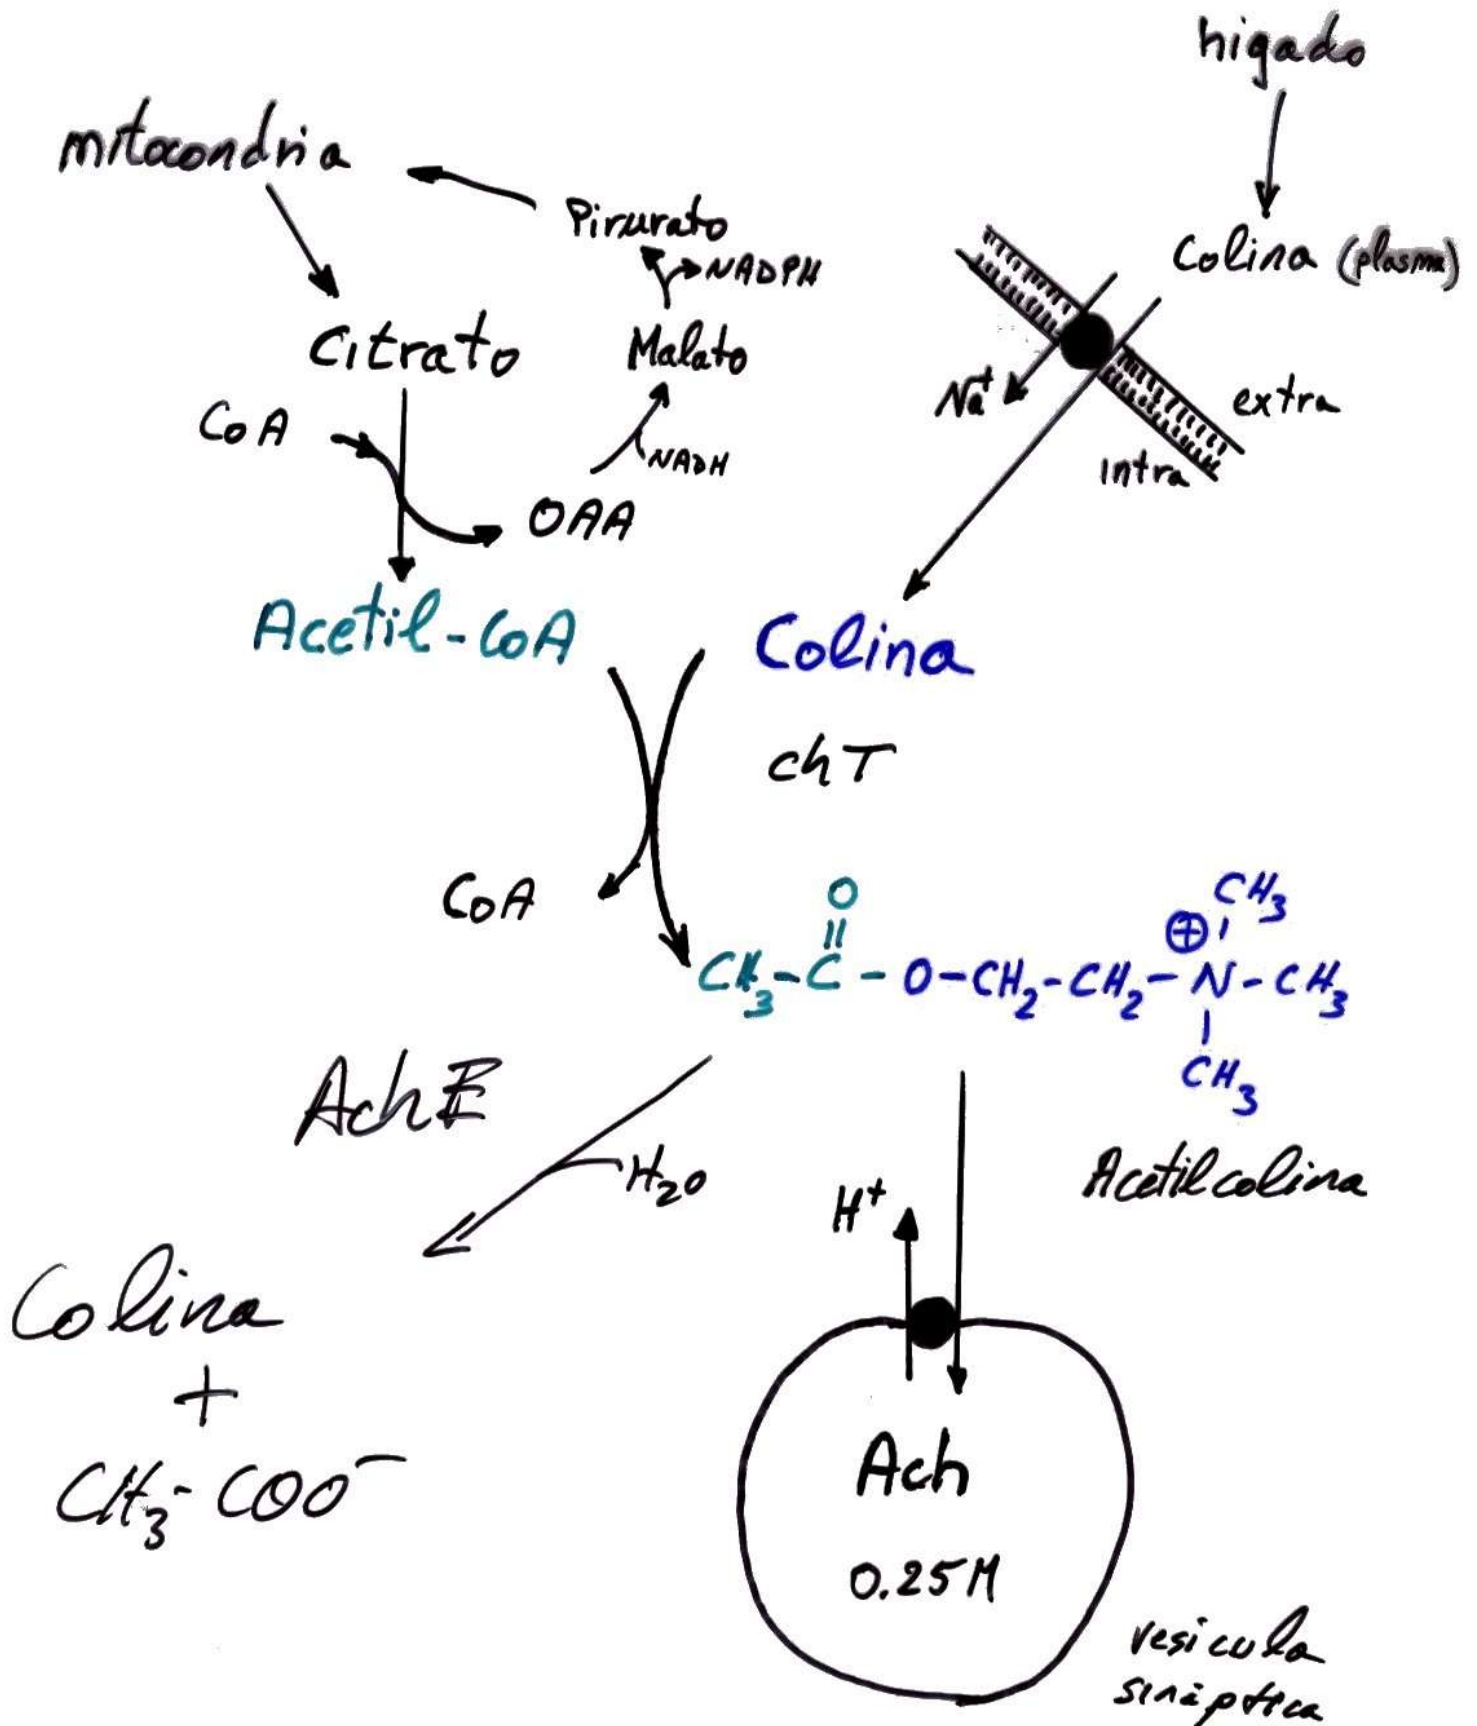 higado
mitocondria
Pirurato
NADPH
Colina (plasma)
Citrato
Malato
Na+
extra
CoA
NADH
intra
OAA
Acetil-CoA
Colina
chT
CoA
O
CH3
⊕
CH3-C-O-CH2-CH2-N-CH3
CH3
AchE
H2O
Acetilcolina
H+
Colina
+
CH3-COO-
Ach
0.25M
vesicula
sináptica